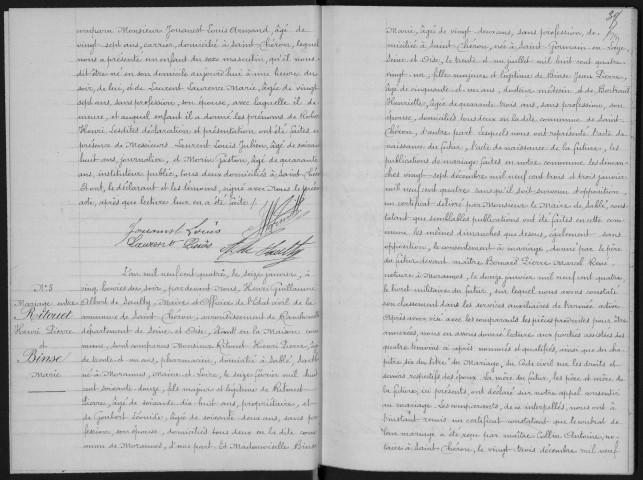 comparu Monsieur Jouanest Louis Armand, âgé de
vingt sept ans, carrier, domicilié à Saint-Chéron, lequel
nous a présenté un enfant du sexe masculin, qu'il nous
dit être né en son domicile aujourd'hui à une heure du
soir, de lui, et de Laurent Laurence Marie, âgée de vingt
sept ans, sans profession, son épouse, avec laquelle il de-
meure, et auquel enfant il a donné les prénoms de
Henri. Lesdites déclaration et présentation ont été faites en
présence de Messieurs Laurent Louis Julien, âgé de soixante
huit ans, journalier, et Morin Gaston, âgé de quarante
ans, instituteur public, tous deux domiciliés à Saint-Chéron
Et ont, le déclarant et les témoins, signé avec Nous le présent
acte, après que lecture leur en a été faite./.
Jouanest Louis
Laurent Louis
N° 3
Mariage entre
Ritouet
Henri Pierre
et
Binse
Marie
L'an mil neuf cent quatre, le seize janvier, à
cinq heures du soir, par devant Nous, Henri Guillaume
Albert de Saulty, Maire et Officier de l'Etat civil de la
commune de Saint-Chéron, arrondissement de Rambouillet
département de Seine-et-Oise, étant en la Maison com-
mune, sont comparus Monsieur Ritouet Henri Pierre, âgé
de trente et un ans, pharmacien, domicilié à Sablé, Sarthe
né à Morannes, Maine et Loire, le seize février mil huit
cent soixante-douze, fils majeur et légitime de Ritouet
Pierre, âgé de soixante dix-huit ans, propriétaire, et
de Léonide, âgée de soixante deux ans, sans pro-
fession, son épouse, domiciliés tous deux en la dite com-
mune de Morannes, d'une part. Et Mademoiselle Binse
Marie, âgée de vingt deux ans, sans profession, do-
miciliée à Saint-Chéron, née à Saint-Germain en Laye,
Seine et Oise, le trente et un juillet mil huit cent quatre
vingt-un, fille majeure et légitime de Binse Jean Pierre,
âgé de cinquante et un ans, docteur médecin, et de Bertrand
Henriette, âgée de quarante trois ans, sans profession, son
épouse, domiciliés tous deux en la dite commune de Saint-
Chéron, d'autre part. Lesquels nous ont représenté l'acte de
naissance du futur, l'acte de naissance de la future, les
publications de mariage faites en notre commune les diman-
ches vingt-sept décembre mil neuf cent trois et trois janvier
mil neuf cent quatre sans qu'il soit survenu d'opposition,
un certificat délivré par Monsieur le Maire de Sablé, cons-
tatant que semblables publications ont été faites en cette com-
mune les mêmes dimanches que dessus, également sans
opposition, le consentement à mariage, donné par le père
du futur devant maître Pierre Marcel René
notaire à Morannes, le douze janvier mil neuf cent quatre,
le livret militaire du futur, sur lequel nous avons constaté
son classement dans les services auxiliaires de l'armée active.
Après avoir visé avec les comparants les pièces produites pour être
annexées, nous en avons donné lecture aux parties assistées des
quatre témoins ci après nommés et qualifiés, ainsi que du cha-
pitre six du titre du Mariage, du Code civil sur les droits et
devoirs respectifs des époux. La mère du futur, les père et mère de
la future, ici présents, ont déclaré sur notre appel consentir
au mariage. Les comparants, de ce interpellés, nous ont à
l'instant remis un certificat constatant que le contrat de
leur mariage a été reçu par maître Collin Antoine, no-
taire à Saint-Chéron, le vingt trois décembre mil neuf